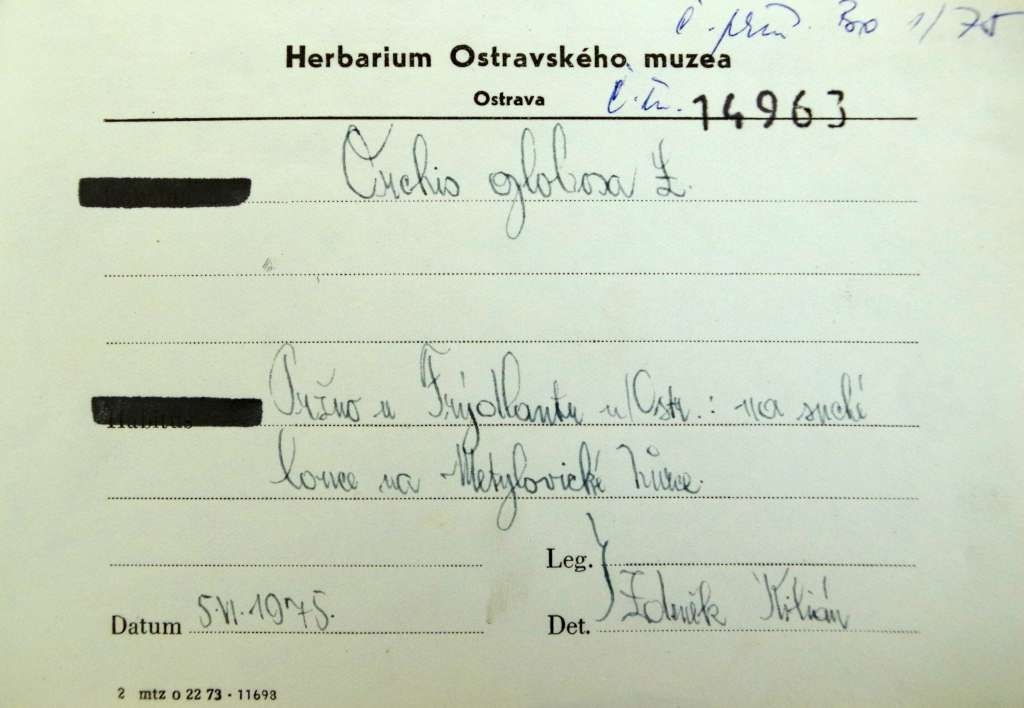 č. přír. Bo 1/75
Herbarium Ostravského muzea
Ostrava
č. i. 14963
Orchis globosa L.
Pržno u Frýdlantu n/Ostr.: na suché
louce na Metylovické hůrce.
Leg.
Datum 5.VI.1975.
Det. Zdeněk Kilián
2 mtz o 22 73 - 11698